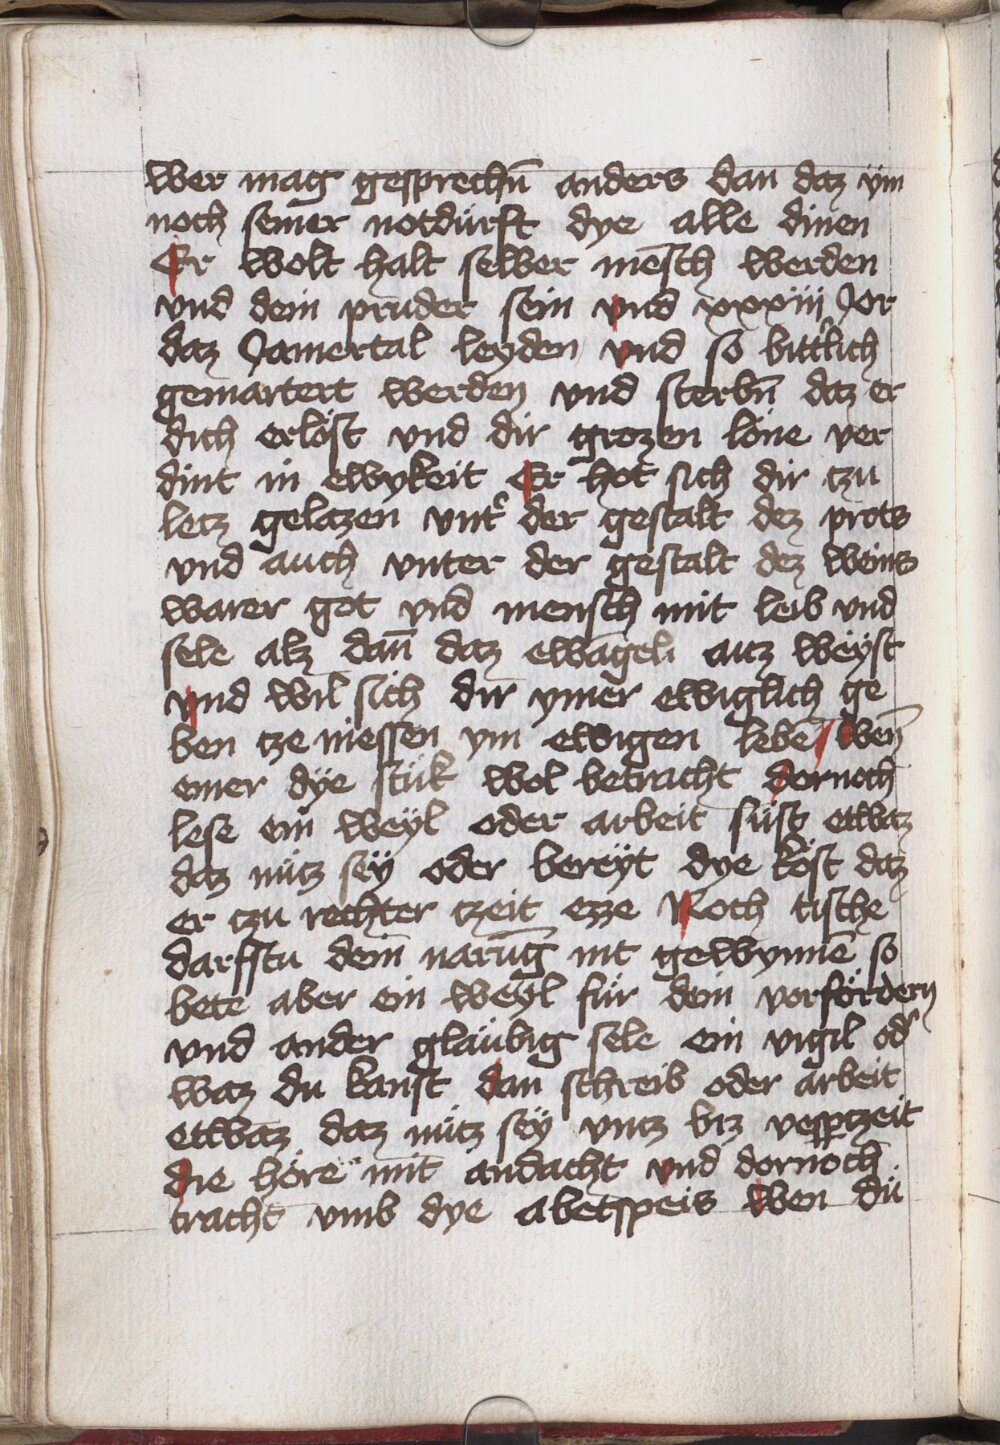 wer mag gesprechn̄ anders dan daz ẏm
noch seiner notdürft dye alle dinen
Er wolt halt selber mēsch werden
vnd dein pruder sein vnd xxxiij Jor
daz Jamertal leyden vnd so bitt̉lich
gemartert werden vnd sterbn̄ daz er
dich erlöst vnd dir grozen löne ver
dint in ewykeit Er hot sich dir czu
letz gelazen vnt̉ der gestalt dez prots
vnd auch vnter der gestalt dez weins
warer got vnd mensch mit leib vnd
sele alz dan̄ daz ewāgeli auz weÿst
vnd wil sich dir ymer ewiglich ge
ben cze niessen ym ewigen lebē wen̄
einer dÿe stük wol betracht dornoch
lese ein weÿl oder arbeit süst etwaz
daz nücz sÿ oder bereÿt dye köst daz
er czu rechter czeit ezze Noch tische
darfstu dein narūg nit gewynnē so
bete aber ein weÿl für dein vorfördern
vnd ander gläubig sele ein vigil od̉
waz du kanst dan schreib oder arbeit
etwaz daz nücz sÿ vncz biz vesperzeit
die höre mit andacht vnd dornoch
tracht vmb dye abetspeis wen dü